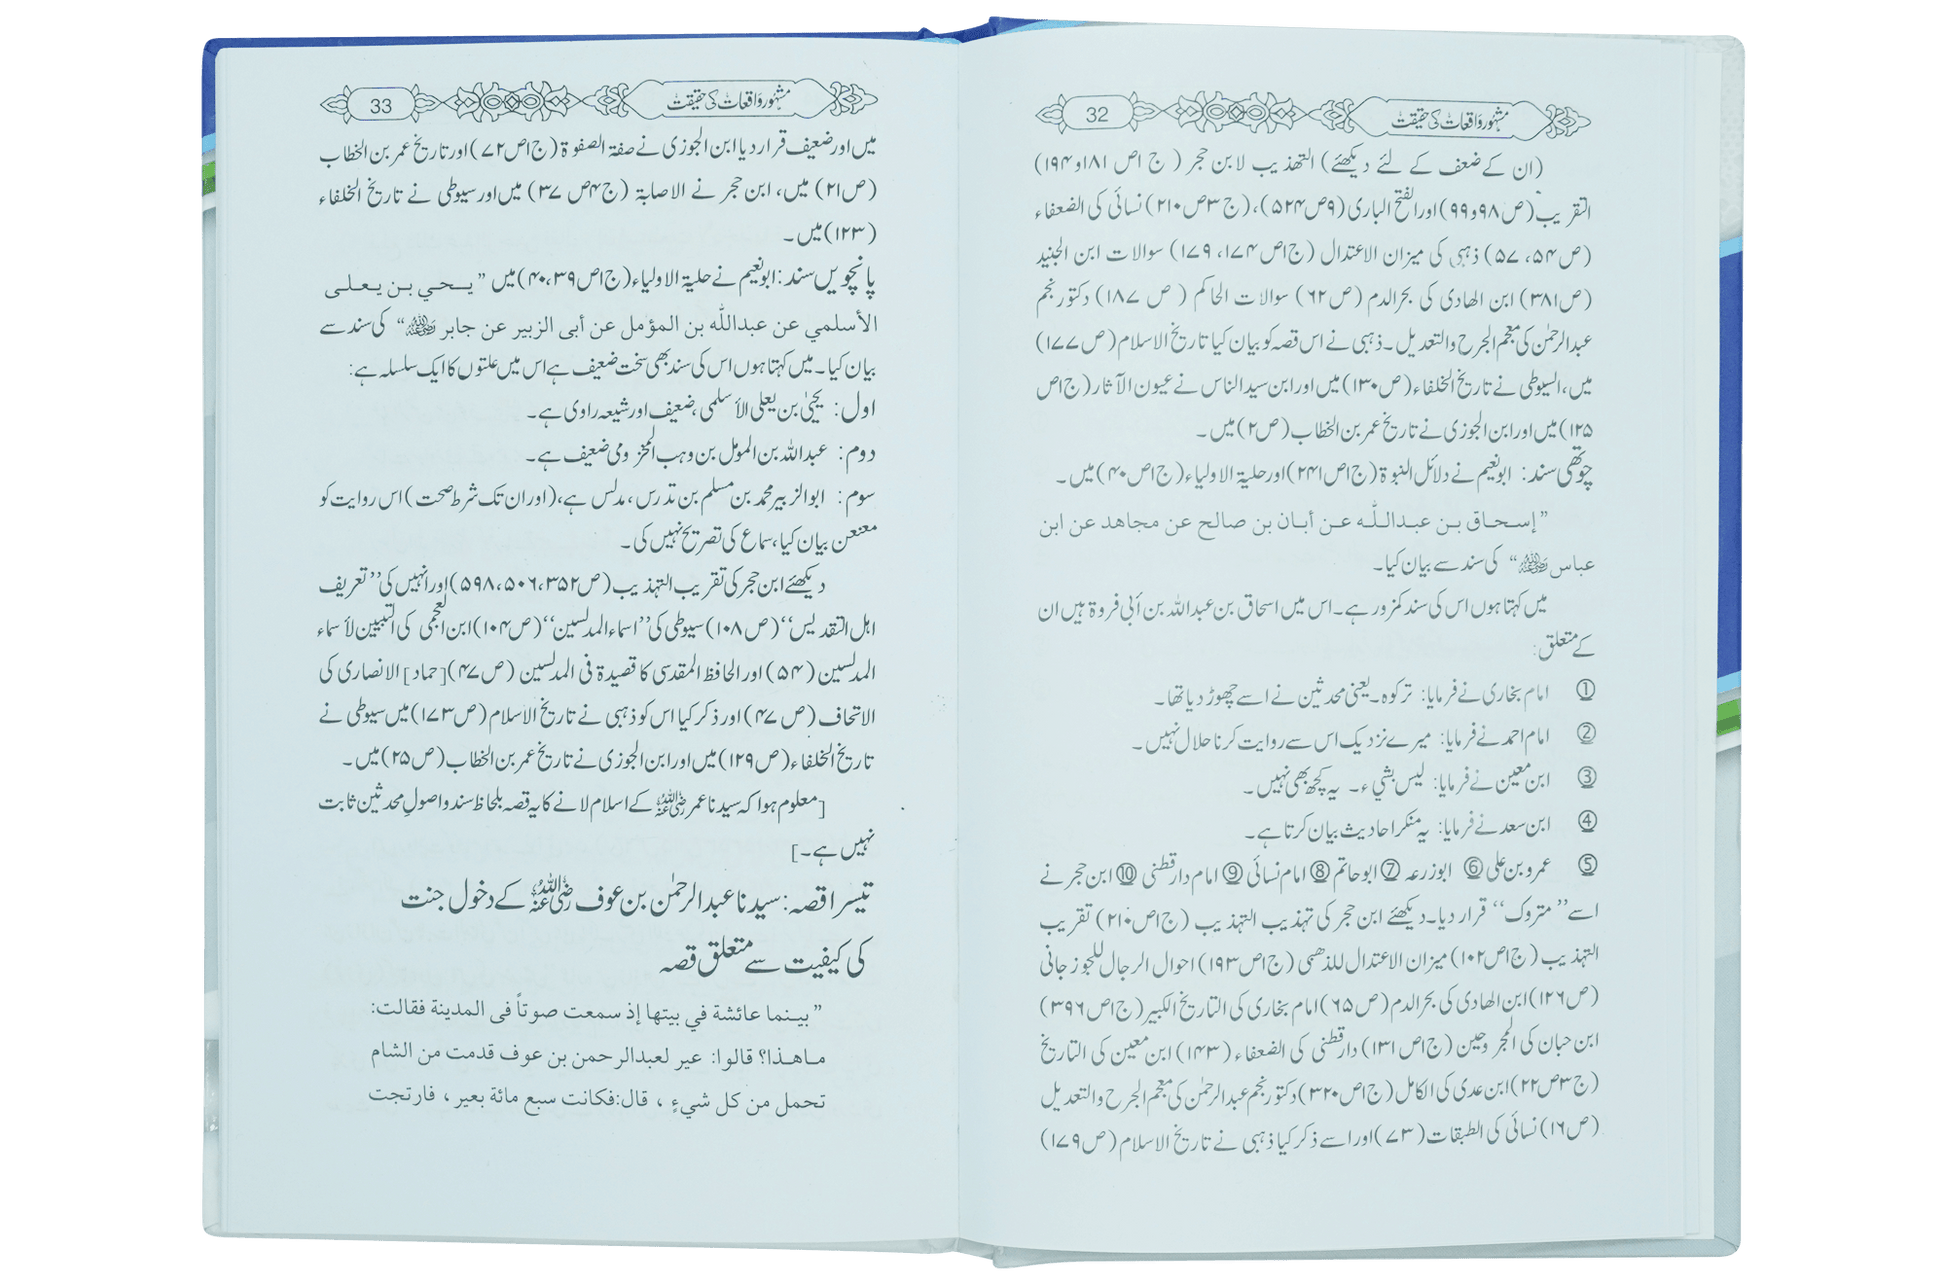 مشہور واقعات کی حقیقت 32
(ان کے ضعف کے لئے دیکھئے) التھذیب لابن حجر (ج اص ۱۸۱ و ۱۹۴)
التقریب (ص ۹۸ و ۹۹) اور الفتح الباری (۹ص ۵۲۴)، (ج ۳ص ۲۱۰) نسائی کی الضعفاء
(ص ۵۴، ۵۷) ذہبی کی میزان الاعتدال (ج اص ۱۷۴، ۱۷۹) سوالات ابن الجنید
(ص ۳۸۱) ابن الھادی کی بحر الدم (ص ۶۲) سوالات الحاکم (ص ۱۸۷) دکتور نجم
عبدالرحمٰن کی معجم الجرح والتعدیل۔ ذہبی نے اس قصہ کو بیان کیا تاریخ الاسلام (ص ۱۷۷)
میں، السیوطی نے تاریخ الخلفاء (ص ۱۳۰) میں اور ابن سید الناس نے عیون الآثار (ج اص
۱۲۵) میں اور ابن الجوزی نے تاریخ عمر بن الخطاب (ص ۲) میں۔
چوتھی سند: ابو نعیم نے دلائل النبوۃ (ج اص ۲۴۱) اور حلیۃ الاولیاء (ج اص ۴۰) میں۔
” إسحاق بن عبداللّٰه عن أبان بن صالح عن مجاهد عن ابن
عباس رضی اللہ عنہ “ کی سند سے بیان کیا۔
میں کہتا ہوں اس کی سند کمزور ہے۔ اس میں اسحاق بن عبداللہ بن أبی فروۃ ہیں ان
کے متعلق:
① امام بخاری نے فرمایا: ترکوہ۔ یعنی محدثین نے اسے چھوڑ دیا تھا۔
② امام احمد نے فرمایا: میرے نزدیک اس سے روایت کرنا حلال نہیں۔
③ ابن معین نے فرمایا: لیس بشيء۔ یہ کچھ بھی نہیں۔
④ ابن سعد نے فرمایا: یہ منکر احادیث بیان کرتا ہے۔
⑤ عمرو بن علی ⑥ ابو زرعہ ⑦ ابو حاتم ⑧ امام نسائی ⑨ امام دار قطنی ⑩ ابن حجر نے
اسے ’’متروک‘‘ قرار دیا۔ دیکھئے ابن حجر کی تہذیب التہذیب (ج اص ۲۱۰) تقریب
التہذیب (ج اص ۱۰۲) میزان الاعتدال للذھبی (ج اص ۱۹۳) احوال الرجال للجوزجانی
(ص ۱۲۶) ابن الھادی کی بحر الدم (ص ۶۵) امام بخاری کی التاریخ الکبیر (ج اص ۳۹۶)
ابن حبان کی المجروحین (ج اص ۱۳۱) دار قطنی کی الضعفاء (۱۴۳) ابن معین کی التاریخ
(ج ۳ص ۲۲) ابن عدی کی الکامل (ج اص ۳۲۰) دکتور نجم عبدالرحمٰن کی معجم الجرح والتعدیل
(ص ۱۶) نسائی کی الطبقات (۷۳) اور اسے ذکر کیا ذہبی نے تاریخ الاسلام (ص ۱۷۹)
مشہور واقعات کی حقیقت 33
میں اور ضعیف قرار دیا ابن الجوزی نے صفۃ الصفوۃ (ج اص ۷۲) اور تاریخ عمر بن الخطاب
(ص ۲۱) میں، ابن حجر نے الاصابۃ (ج ۴ص ۳۷) میں اور سیوطی نے تاریخ الخلفاء
(۱۲۳) میں۔
پانچویں سند: ابو نعیم نے حلیۃ الاولیاء (ج اص ۳۹، ۴۰) میں ” یحي بن یعلی
الأسلمي عن عبداللّٰه بن المؤمل عن أبی الزبیر عن جابر رضی اللہ عنہ “ کی سند سے
بیان کیا۔ میں کہتا ہوں اس کی سند بھی سخت ضعیف ہے اس میں علتوں کا ایک سلسلہ ہے:
اول: یحییٰ بن یعلی الأسلمی، ضعیف اور شیعہ راوی ہے۔
دوم: عبداللہ بن المومل بن وہب المخزومی ضعیف ہے۔
سوم: ابو الزبیر محمد بن مسلم بن تدرس، مدلس ہے، (اور ان تک شرط صحت) اس روایت کو
معنعن بیان کیا، سماع کی تصریح نہیں کی۔
دیکھئے ابن حجر کی تقریب التہذیب (ص ۳۵۲، ۵۰۶، ۵۹۸) اور انہیں کی ’’تعریف
اہل التقدیس‘‘ (ص ۱۰۸) سیوطی کی ’’اسماء المدلسین‘‘ (ص ۱۰۴) ابن العجمی کی التبیین لأسماء
المدلسین (۵۴) اور الحافظ المقدسی کا قصیدۃ فی المدلسین (ص ۴۷) [حماد] الانصاری کی
الاتحاف (ص ۴۷) اور ذکر کیا اس کو ذہبی نے تاریخ الاسلام (ص ۱۷۳) میں سیوطی نے
تاریخ الخلفاء (ص ۱۲۹) میں اور ابن الجوزی نے تاریخ عمر بن الخطاب (ص ۲۵) میں۔
[معلوم ہوا کہ سیدنا عمر رضی اللہ عنہ کے اسلام لانے کا یہ قصہ بلحاظ سند و اصولِ محدثین ثابت
نہیں ہے۔]
تیسرا قصہ: سیدنا عبدالرحمٰن بن عوف رضی اللہ عنہ کے دخول جنت
کی کیفیت سے متعلق قصہ
” بینما عائشة في بیتها إذ سمعت صوتاً فی المدینة فقالت:
ماهذا؟ قالوا: عیر لعبدالرحمن بن عوف قدمت من الشام
تحمل من كل شيءٍ ، قال: فكانت سبع مائة بعیر ، فارتجت